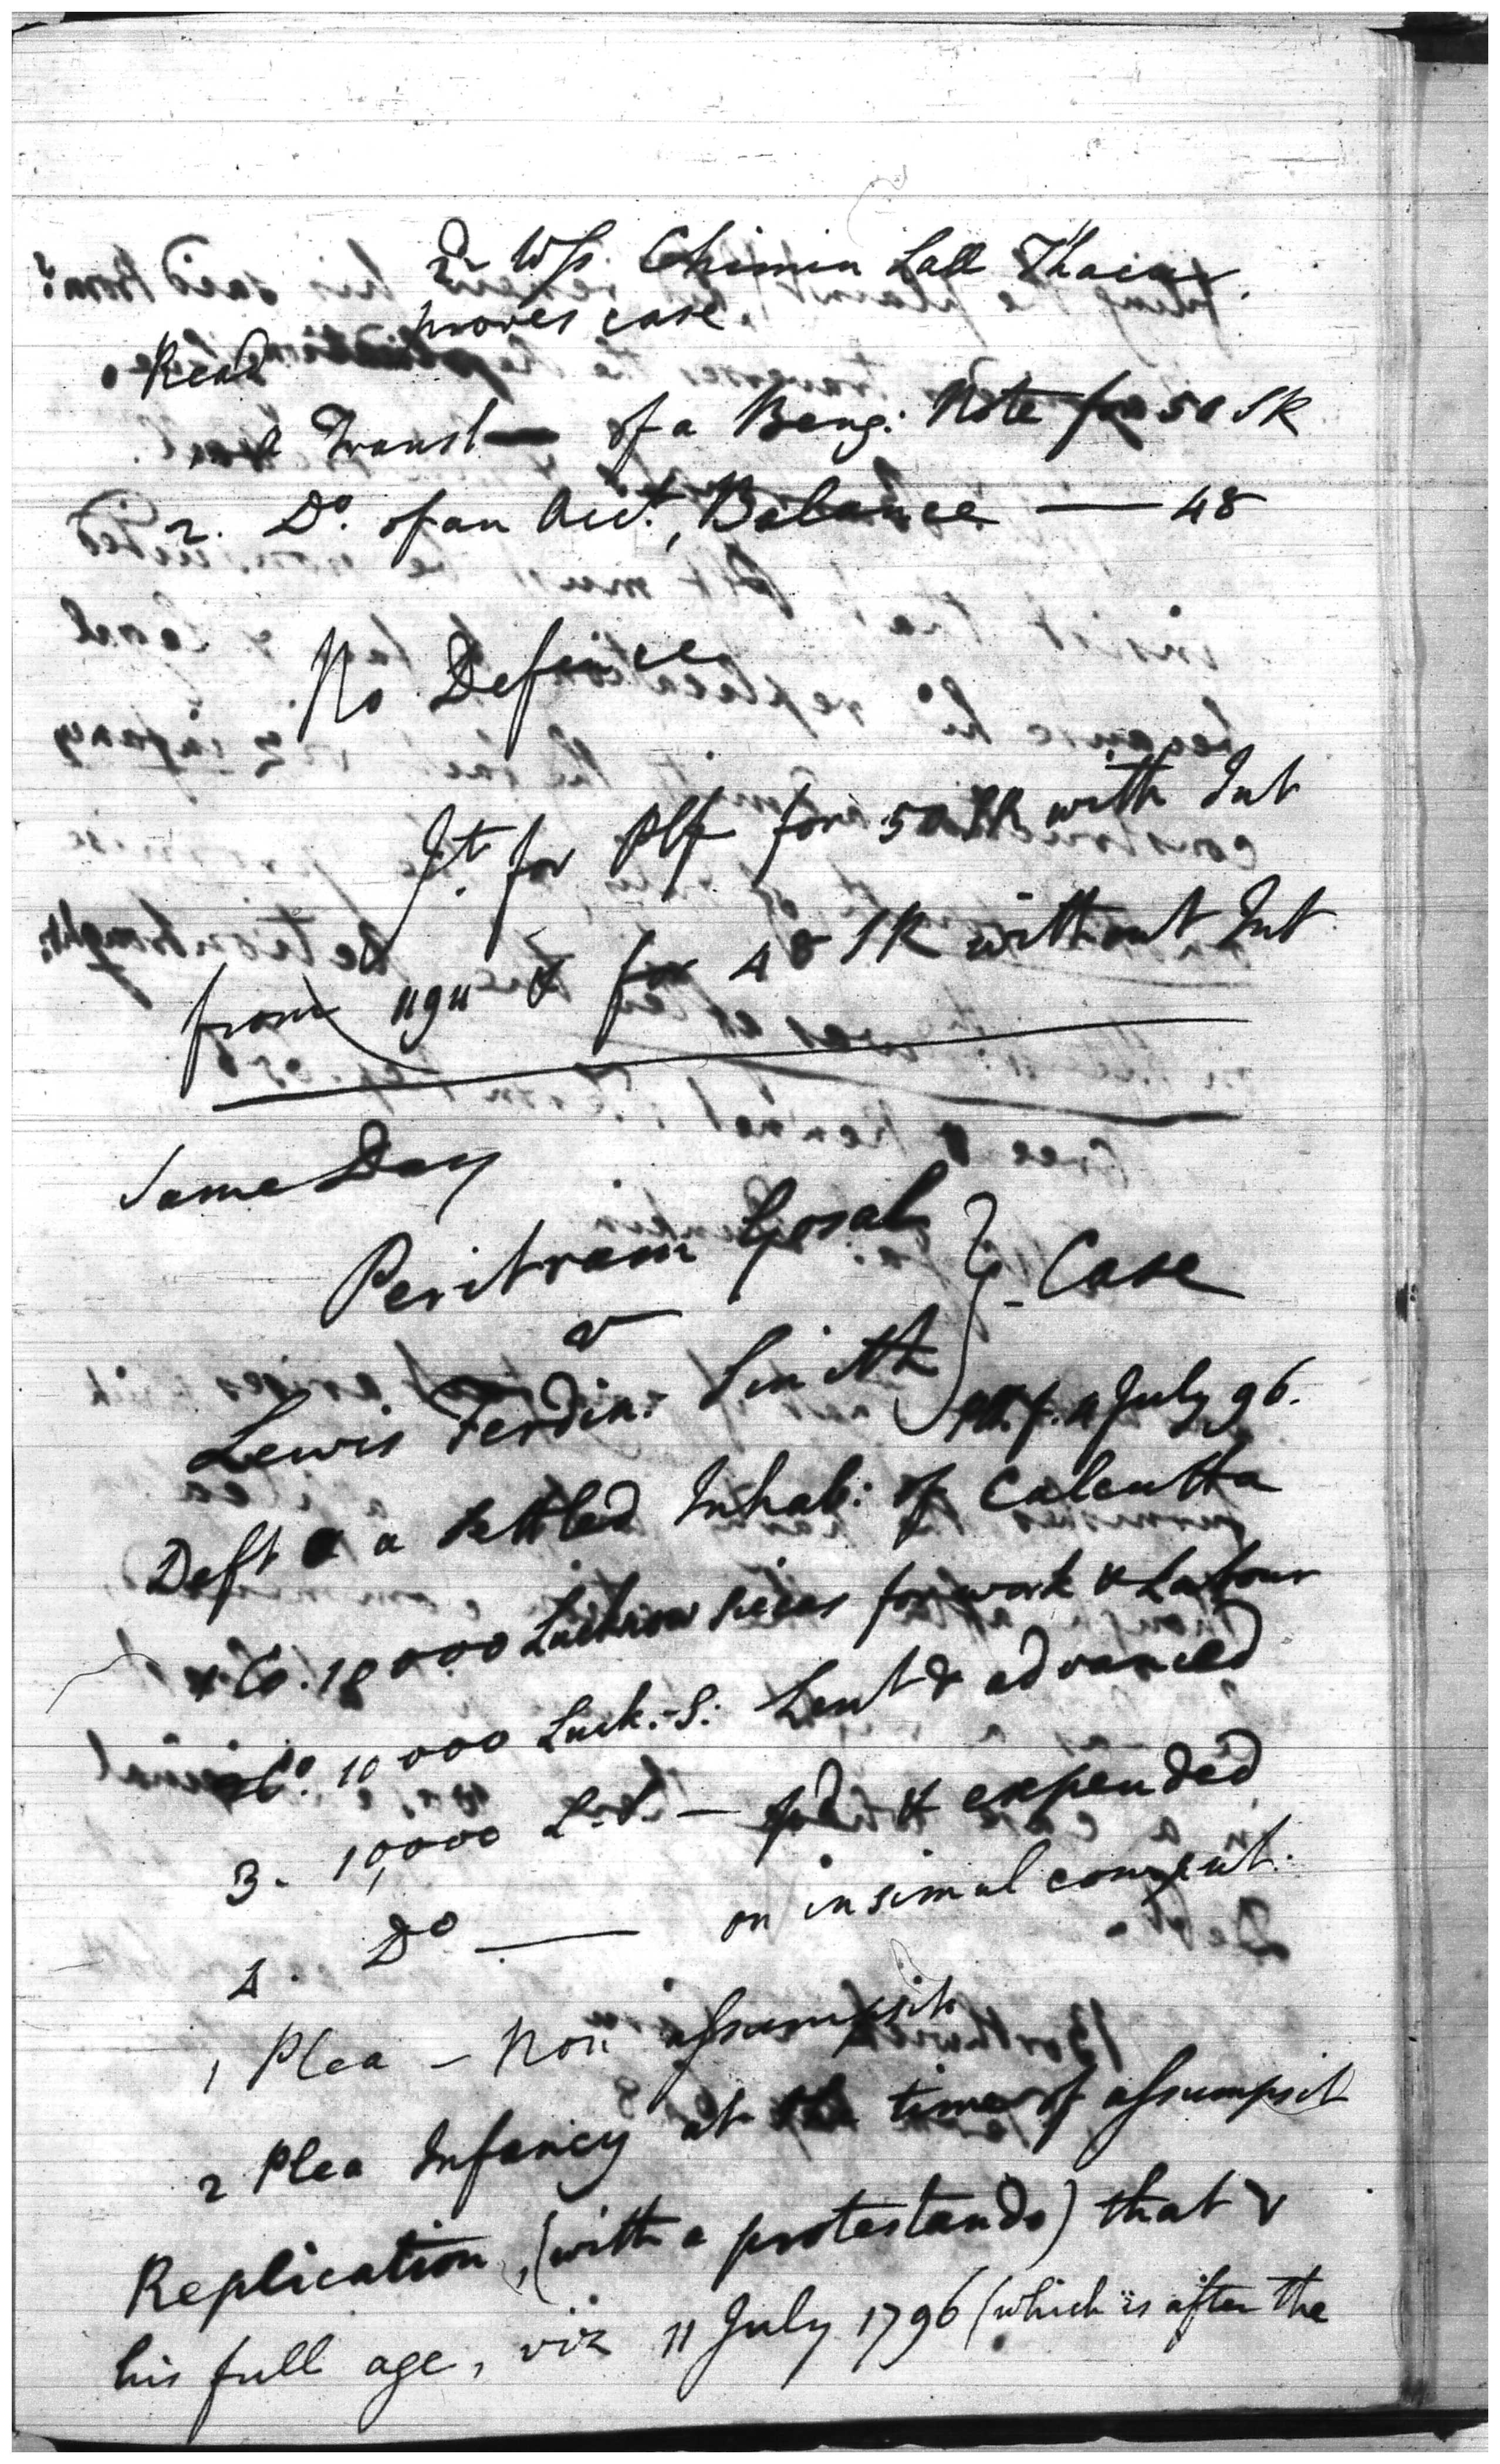 2d Wss. Chimin Lall Thacur.
proves case.
Read
Transl— of a Beng: Note for 50 SR
2. Do. of an Acct., Balance — 48
No Defence
Jt. for Plf for 50 SR with Int
from & for 48 SR without Int
Same Day
Peritram Gosal
v
Lewis Ferdin: Smith } Case
11 July 96.
Deft a settled Inhab: of Calcutta
1 Co. 10000 Lucknow siccas for work & Labour
2 Co. 10000 Luck.-S: Lent & advanced
3 - 10,000 L.S. — pd & expended
4. Do — on insimul comput.
1 Plea — Non assumpsit
2 Plea Infancy at the time of assumpsit
Replication, (with a protestando) that &
his full age, viz 11 July 1796 (which is after the